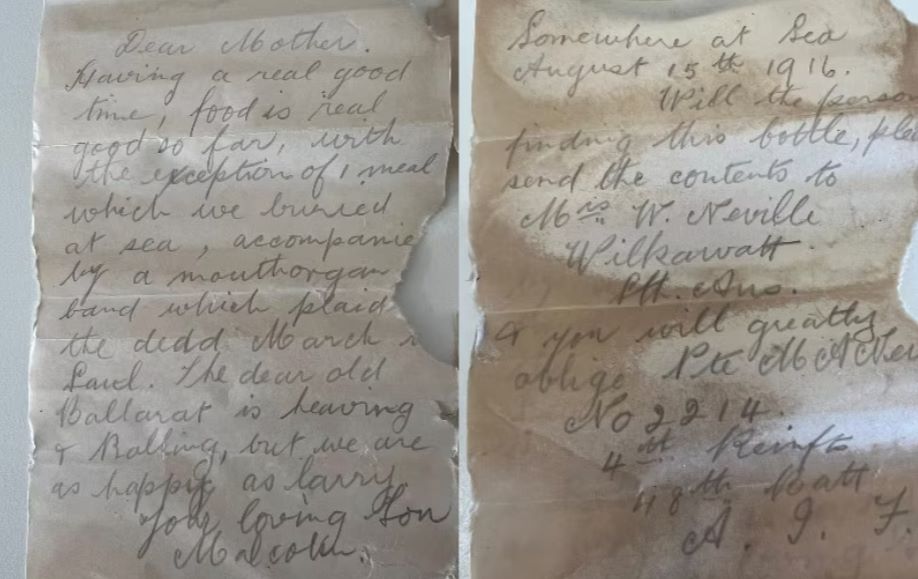 Dear Mother.
Having a real good
time, food is real
good so far, with
the exception of 1 meal
which we burried
at sea, accompanie
by a mouthorgan
band which plaid
the dedd March
Saul. The dear old
Ballarat is heaving
& Balling, but we are
as happy as larry.
Your loving Son
Malcolm.
Somewhere at Sea
August 15th 1916.
Will the perso
finding this bottle, ple
send the contents to
Mrs W. Neville
Wilkawatt.
Sth. Aus.
& you will greatly
oblige Pte M A Nev
No 2214.
4th Reinfts
48th Batt
A. I. F.